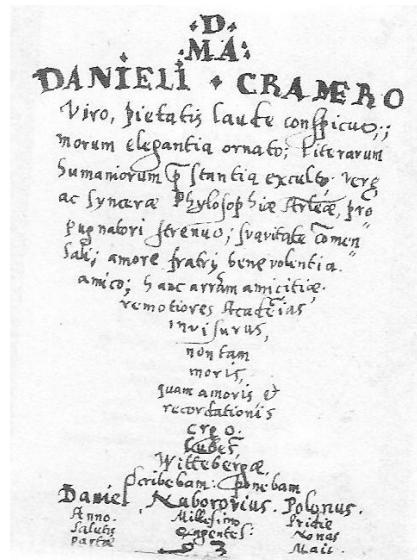 ·D·
·M·A·
DANIELI · CRAMERO
Viro, pietatis laude conspicuo;
morum elegantia ornato; literarum
humaniorum p̄stantia exculto verę
ac synceræ Phylosophiæ pro
pugnatori strenuo; svavitate com̄en
sali; amore fratri; benevolentia
amico; hanc arram amicitiæ.
remotiores Academias
invisurus,
non tam
moris,
quam amoris et
recordationis
ergo.
Lubēs
Wittebergæ
scribebam: ponebam
Daniel Naborovius. Polonus.
Anno. Millesimo Pridie
Salutis Nonas
partæ 93 Maii.